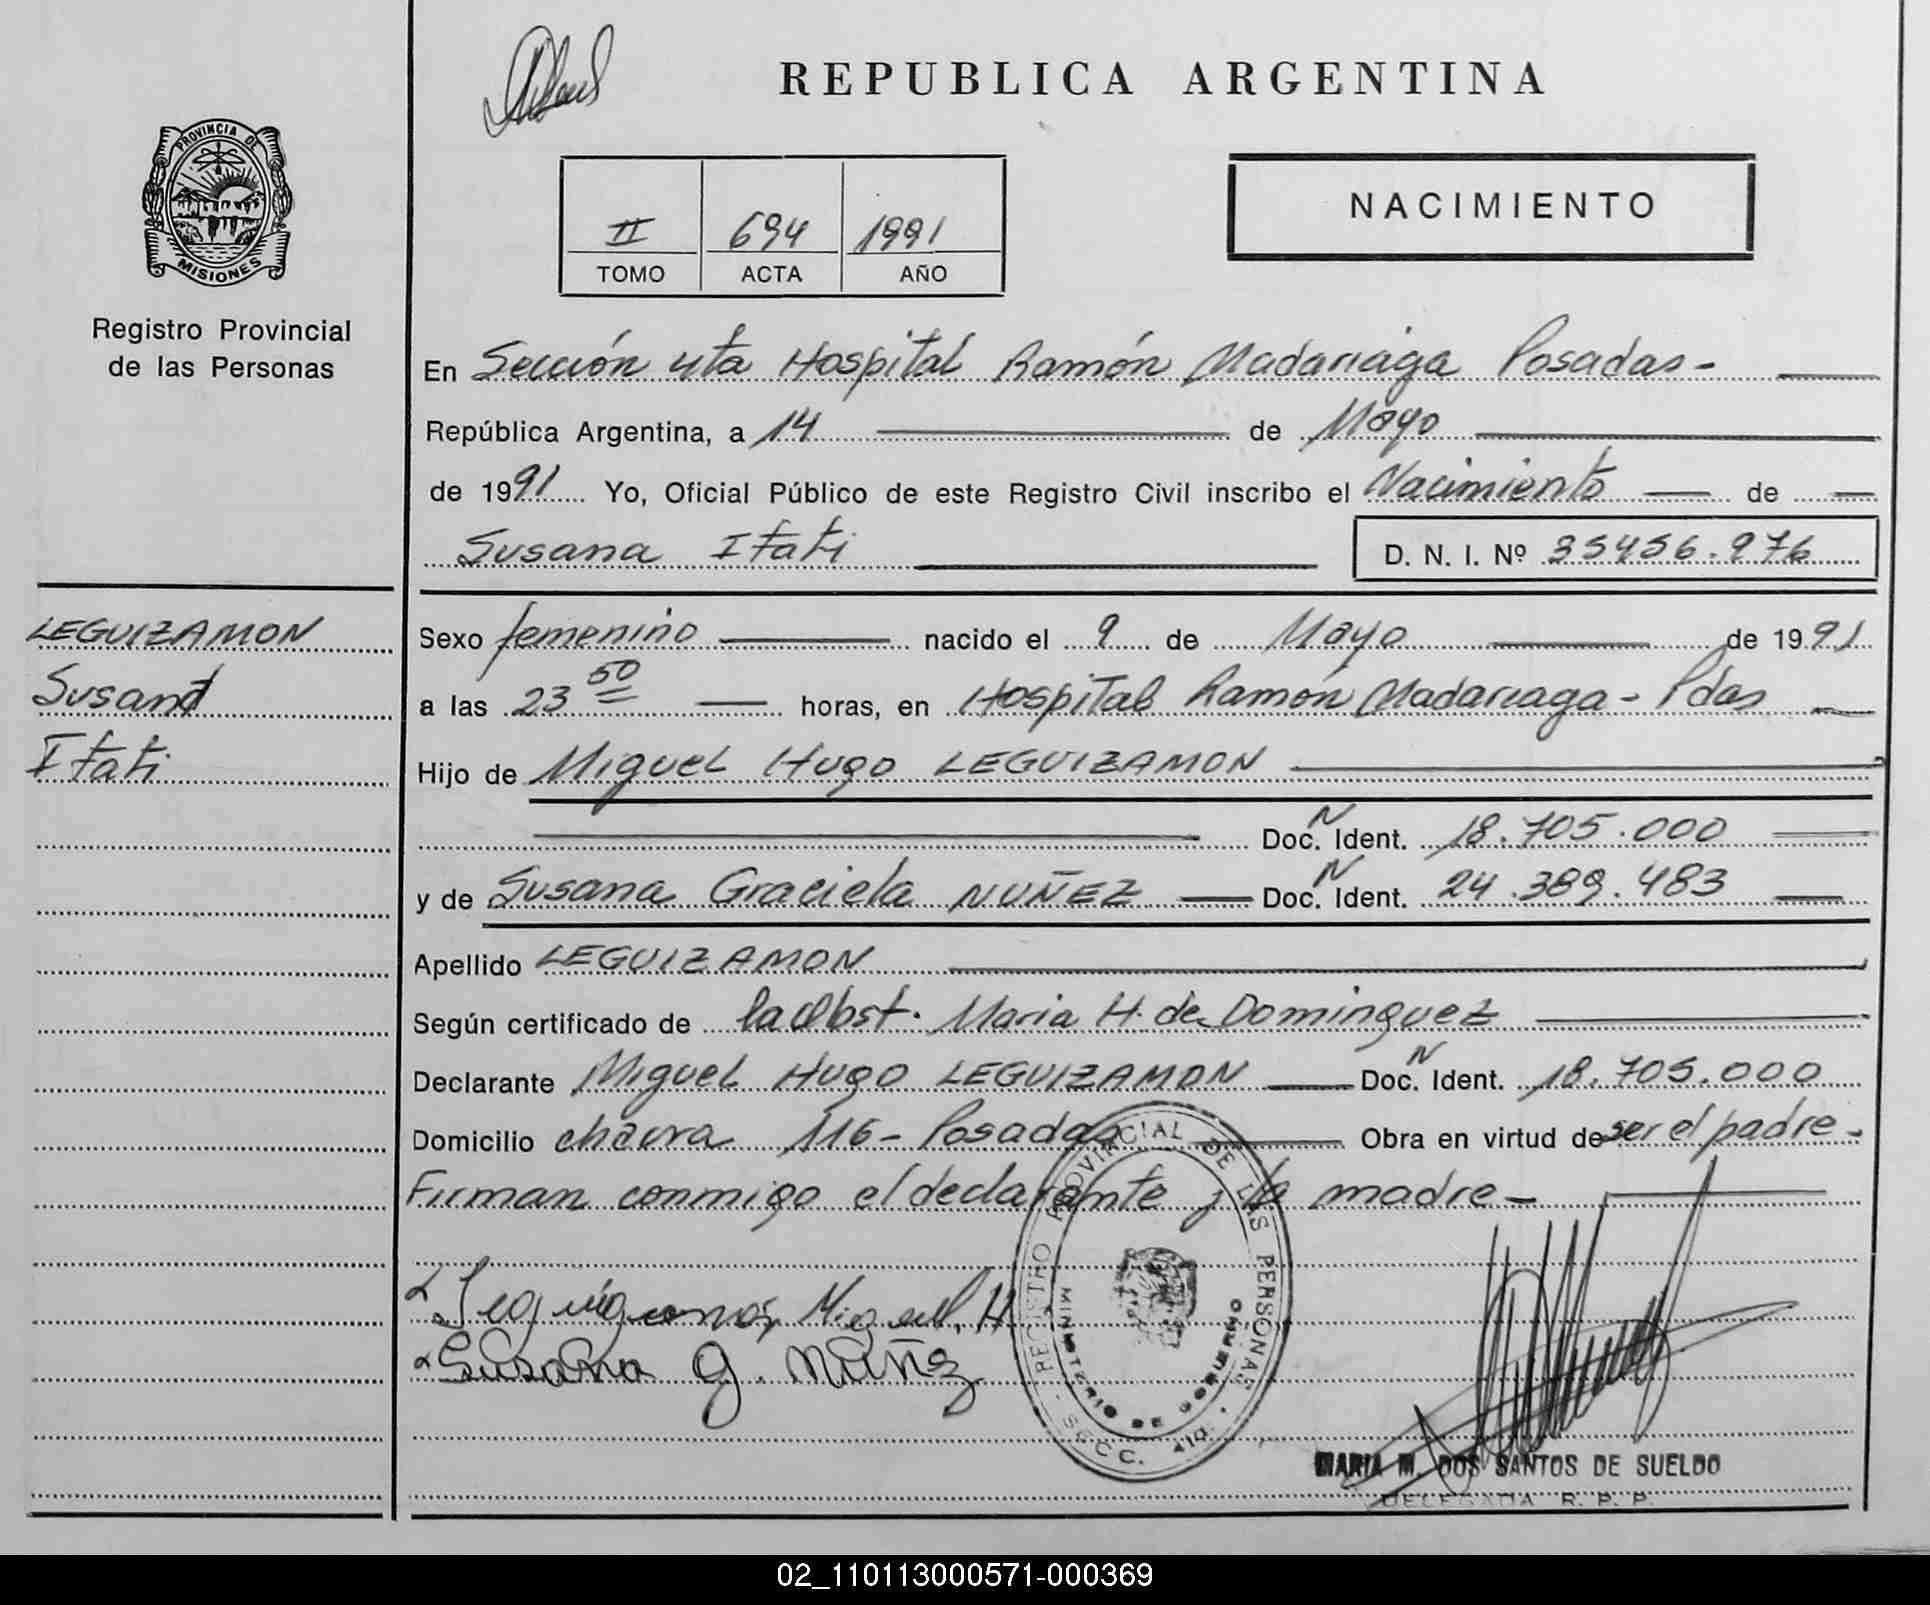 REPUBLICA ARGENTINA
PROVINCIA DE
MISIONES
Registro Provincial
de las Personas
II 694 1991
TOMO ACTA AÑO
NACIMIENTO
En Sección 4ta Hospital Ramón Madariaga Posadas-
República Argentina, a 14 de Mayo
de 1991 Yo, Oficial Público de este Registro Civil inscribo el Nacimiento de
Susana Itati
D. N. I. Nº 35456.976
LEGUIZAMON
Susana
Itati
Sexo femenino nacido el 9 de Mayo de 1991
a las 23 50 horas, en Hospital Ramón Madariaga - Pdas
Hijo de Miguel Hugo LEGUIZAMON
Doc. N Ident. 18.705.000
y de Susana Graciela NUÑEZ Doc. N Ident. 24.389.483
Apellido LEGUIZAMON
Según certificado de la Obst. Maria H. de Dominguez
Declarante Miguel Hugo LEGUIZAMON Doc. N Ident. 18.705.000
Domicilio chacra 116- Posadas Obra en virtud de ser el padre-
Firman conmigo el declarante y la madre-
Leguizamon, Miguel, H
Susana G. Nuñez
REGISTRO PROVINCIAL DE LAS PERSONAS
MINISTERIO DE GOBIERNO
SECC. 4ta
MARIA M. DOS SANTOS DE SUELDO
DELEGADA R. P. P.
02_110113000571-000369